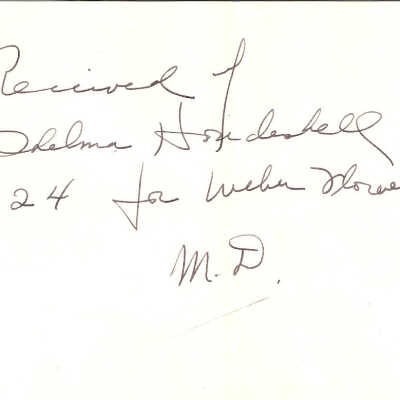 Received of
Thelma Houdeshell
24 for Weber Flowe
M.D.